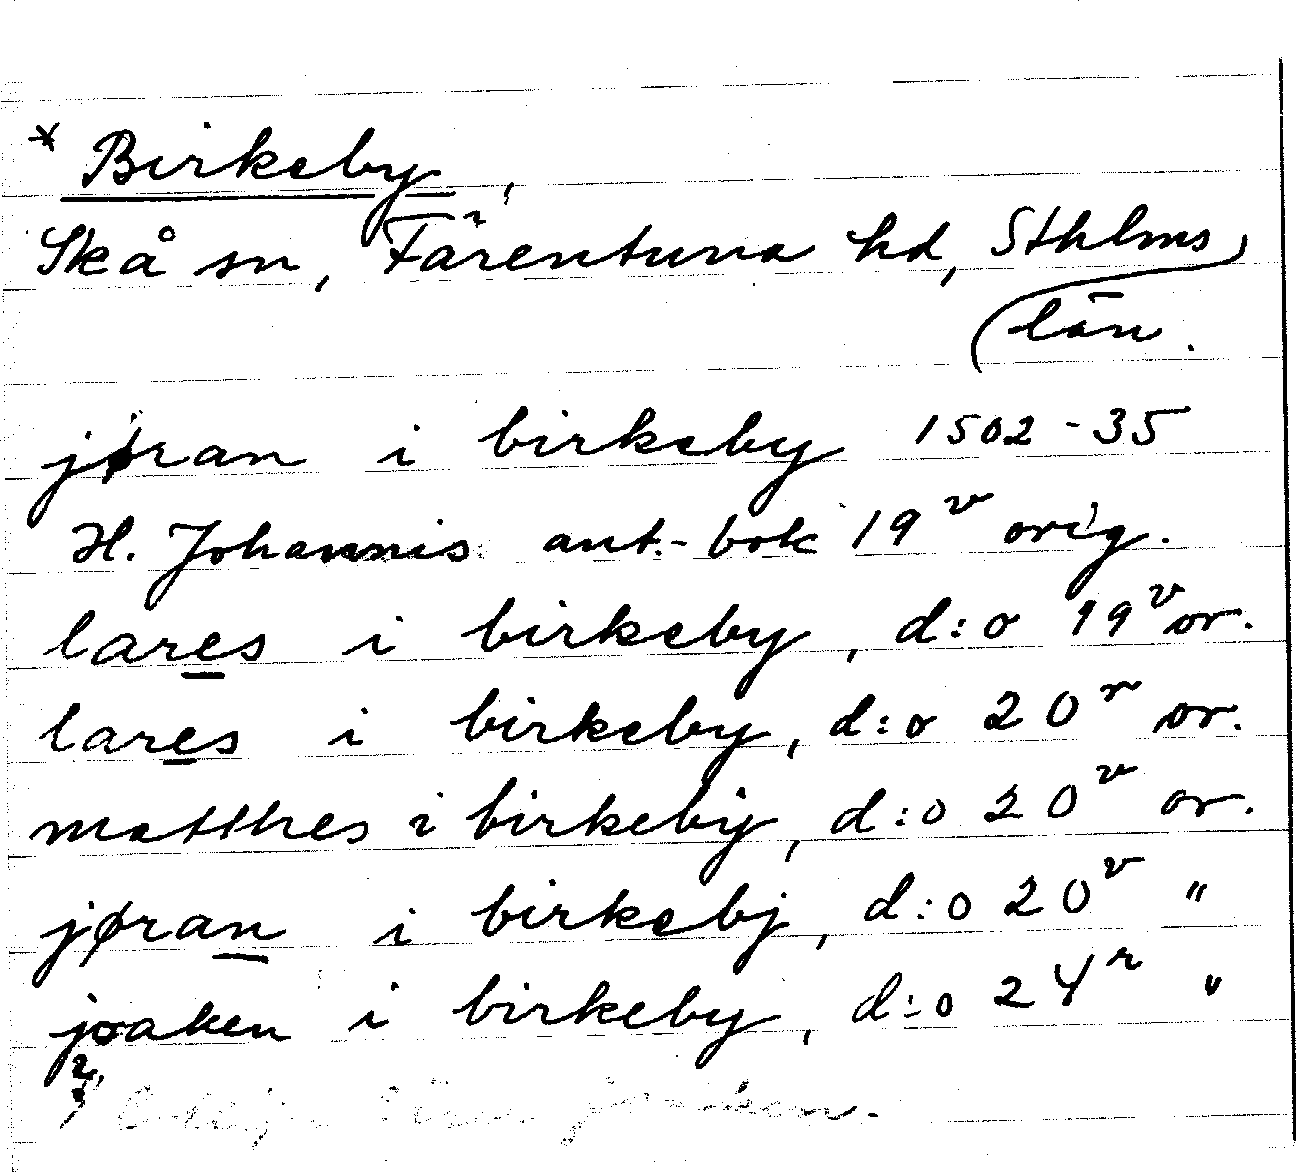 * Birkeby,
Skå sn, Färentuna hd, Sthlms
län.
jøran i birkeby 1502-35
H. Johannis ant.-bok 19v orig.
lares i birkeby, d:o 19v or.
lares i birkeby, d:o 20r or.
matthes i birkebÿ, d:o 20v or.
jøran i birkebj, d:o 20v "
joaken i birkeby, d:o 24r "